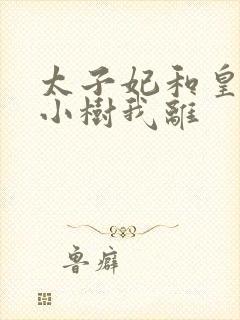 太子妃和皇
小樹我離
魯癖